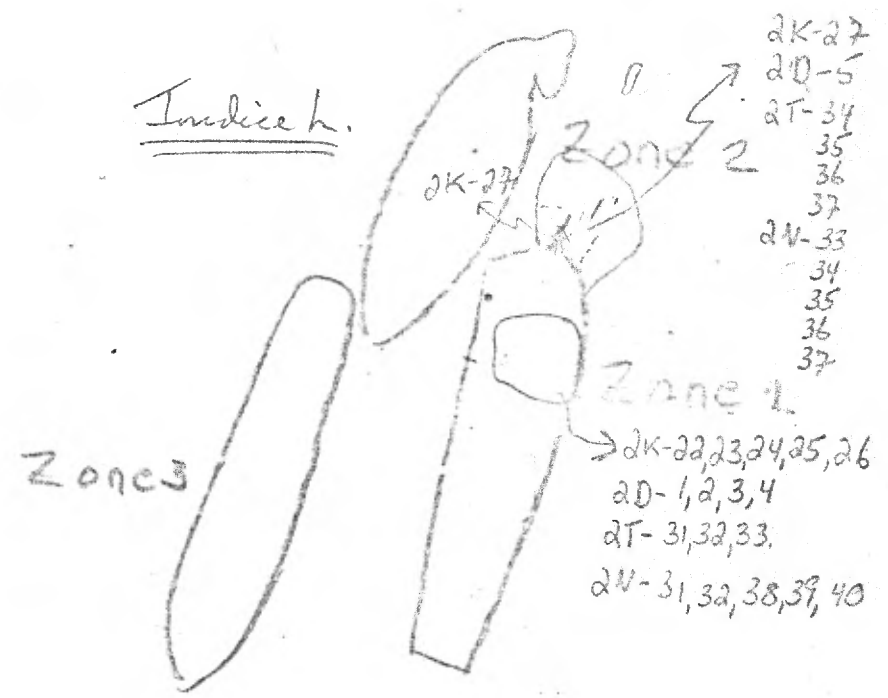 Indice h.
2K-27
2D-5
2T-34
35
36
37
2N-33
34
35
36
37
Zone 2
2K-27
Zone 1
2K-22,23,24,25,26
2D-1,2,3,4
2T-31,32,33.
2N-31,32,38,39,40
Zone 3